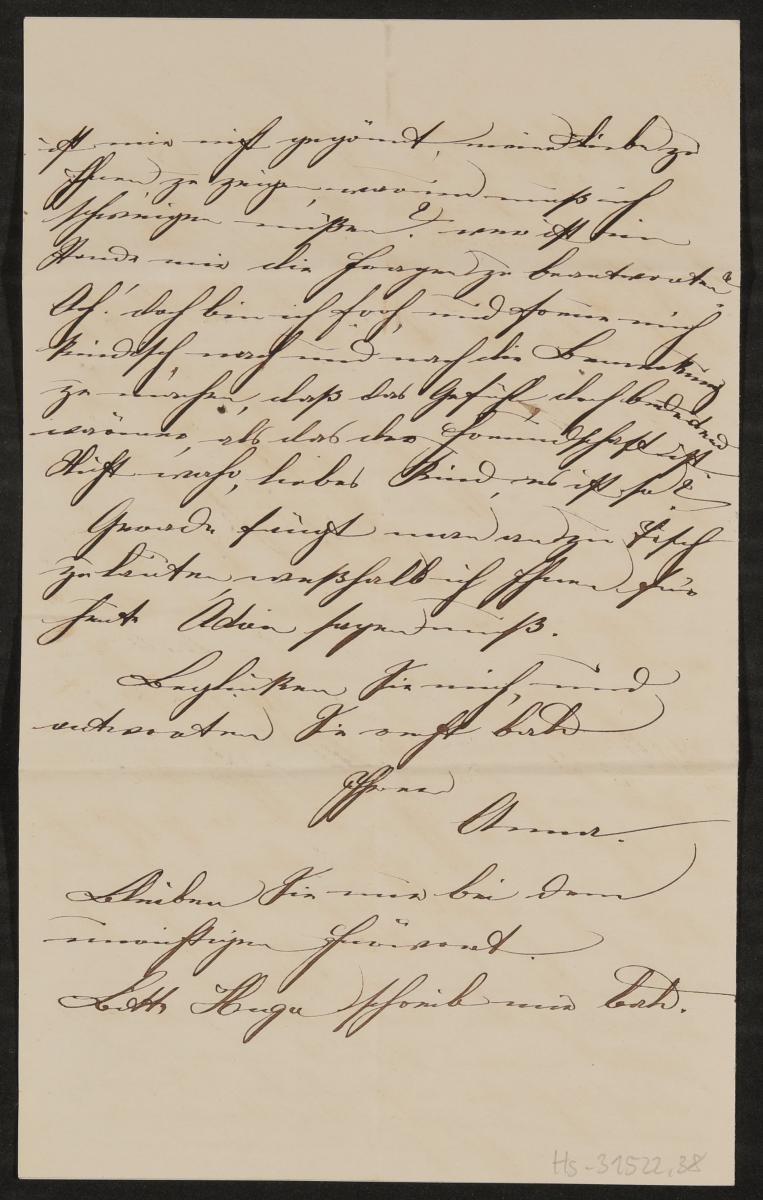 ist mir nicht gegönnt, meine Liebe zu
Ihnen zu zeigen, warum muß ich
schweigen müßen? wer ist im
Stande mir die Fragen zu beantworten?
Ach! doch bin ich froh, und freue mich
kindisch, nach und nach die Bemerkung
zu machen, daß das Gefühl doch bedeutend
wärmer, als das der Freundschaft ist
Nicht wahr, liebes Kind, es ist so?
Gerade fängt man an zu Tisch
zu läuten, weßhalb ich Ihnen für
heute Adieu sagen muß.
Beglücken Sie mich, und
antworten Sie recht bald
Ihrer
Anna.
Bleiben Sie mir bei dem
Fürwort.
Bitte Hugo schreib mir bald.
Hs-31522,38